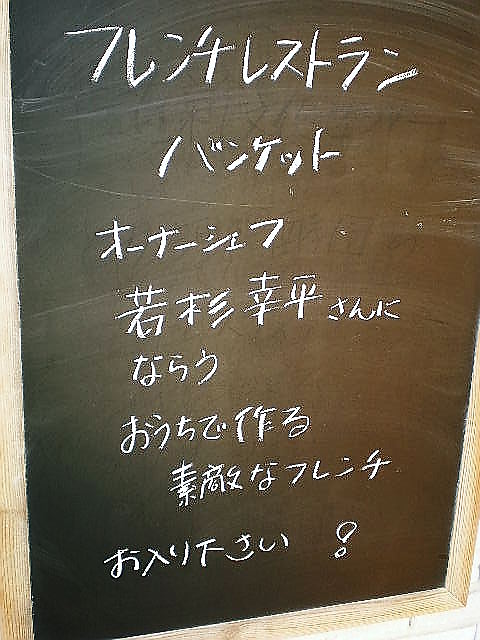 フレンチレストラン
バンケット
オーナーシェフ
若杉幸平さんに
ならう
おうちで作る
素敵なフレンチ
お入り下さい！